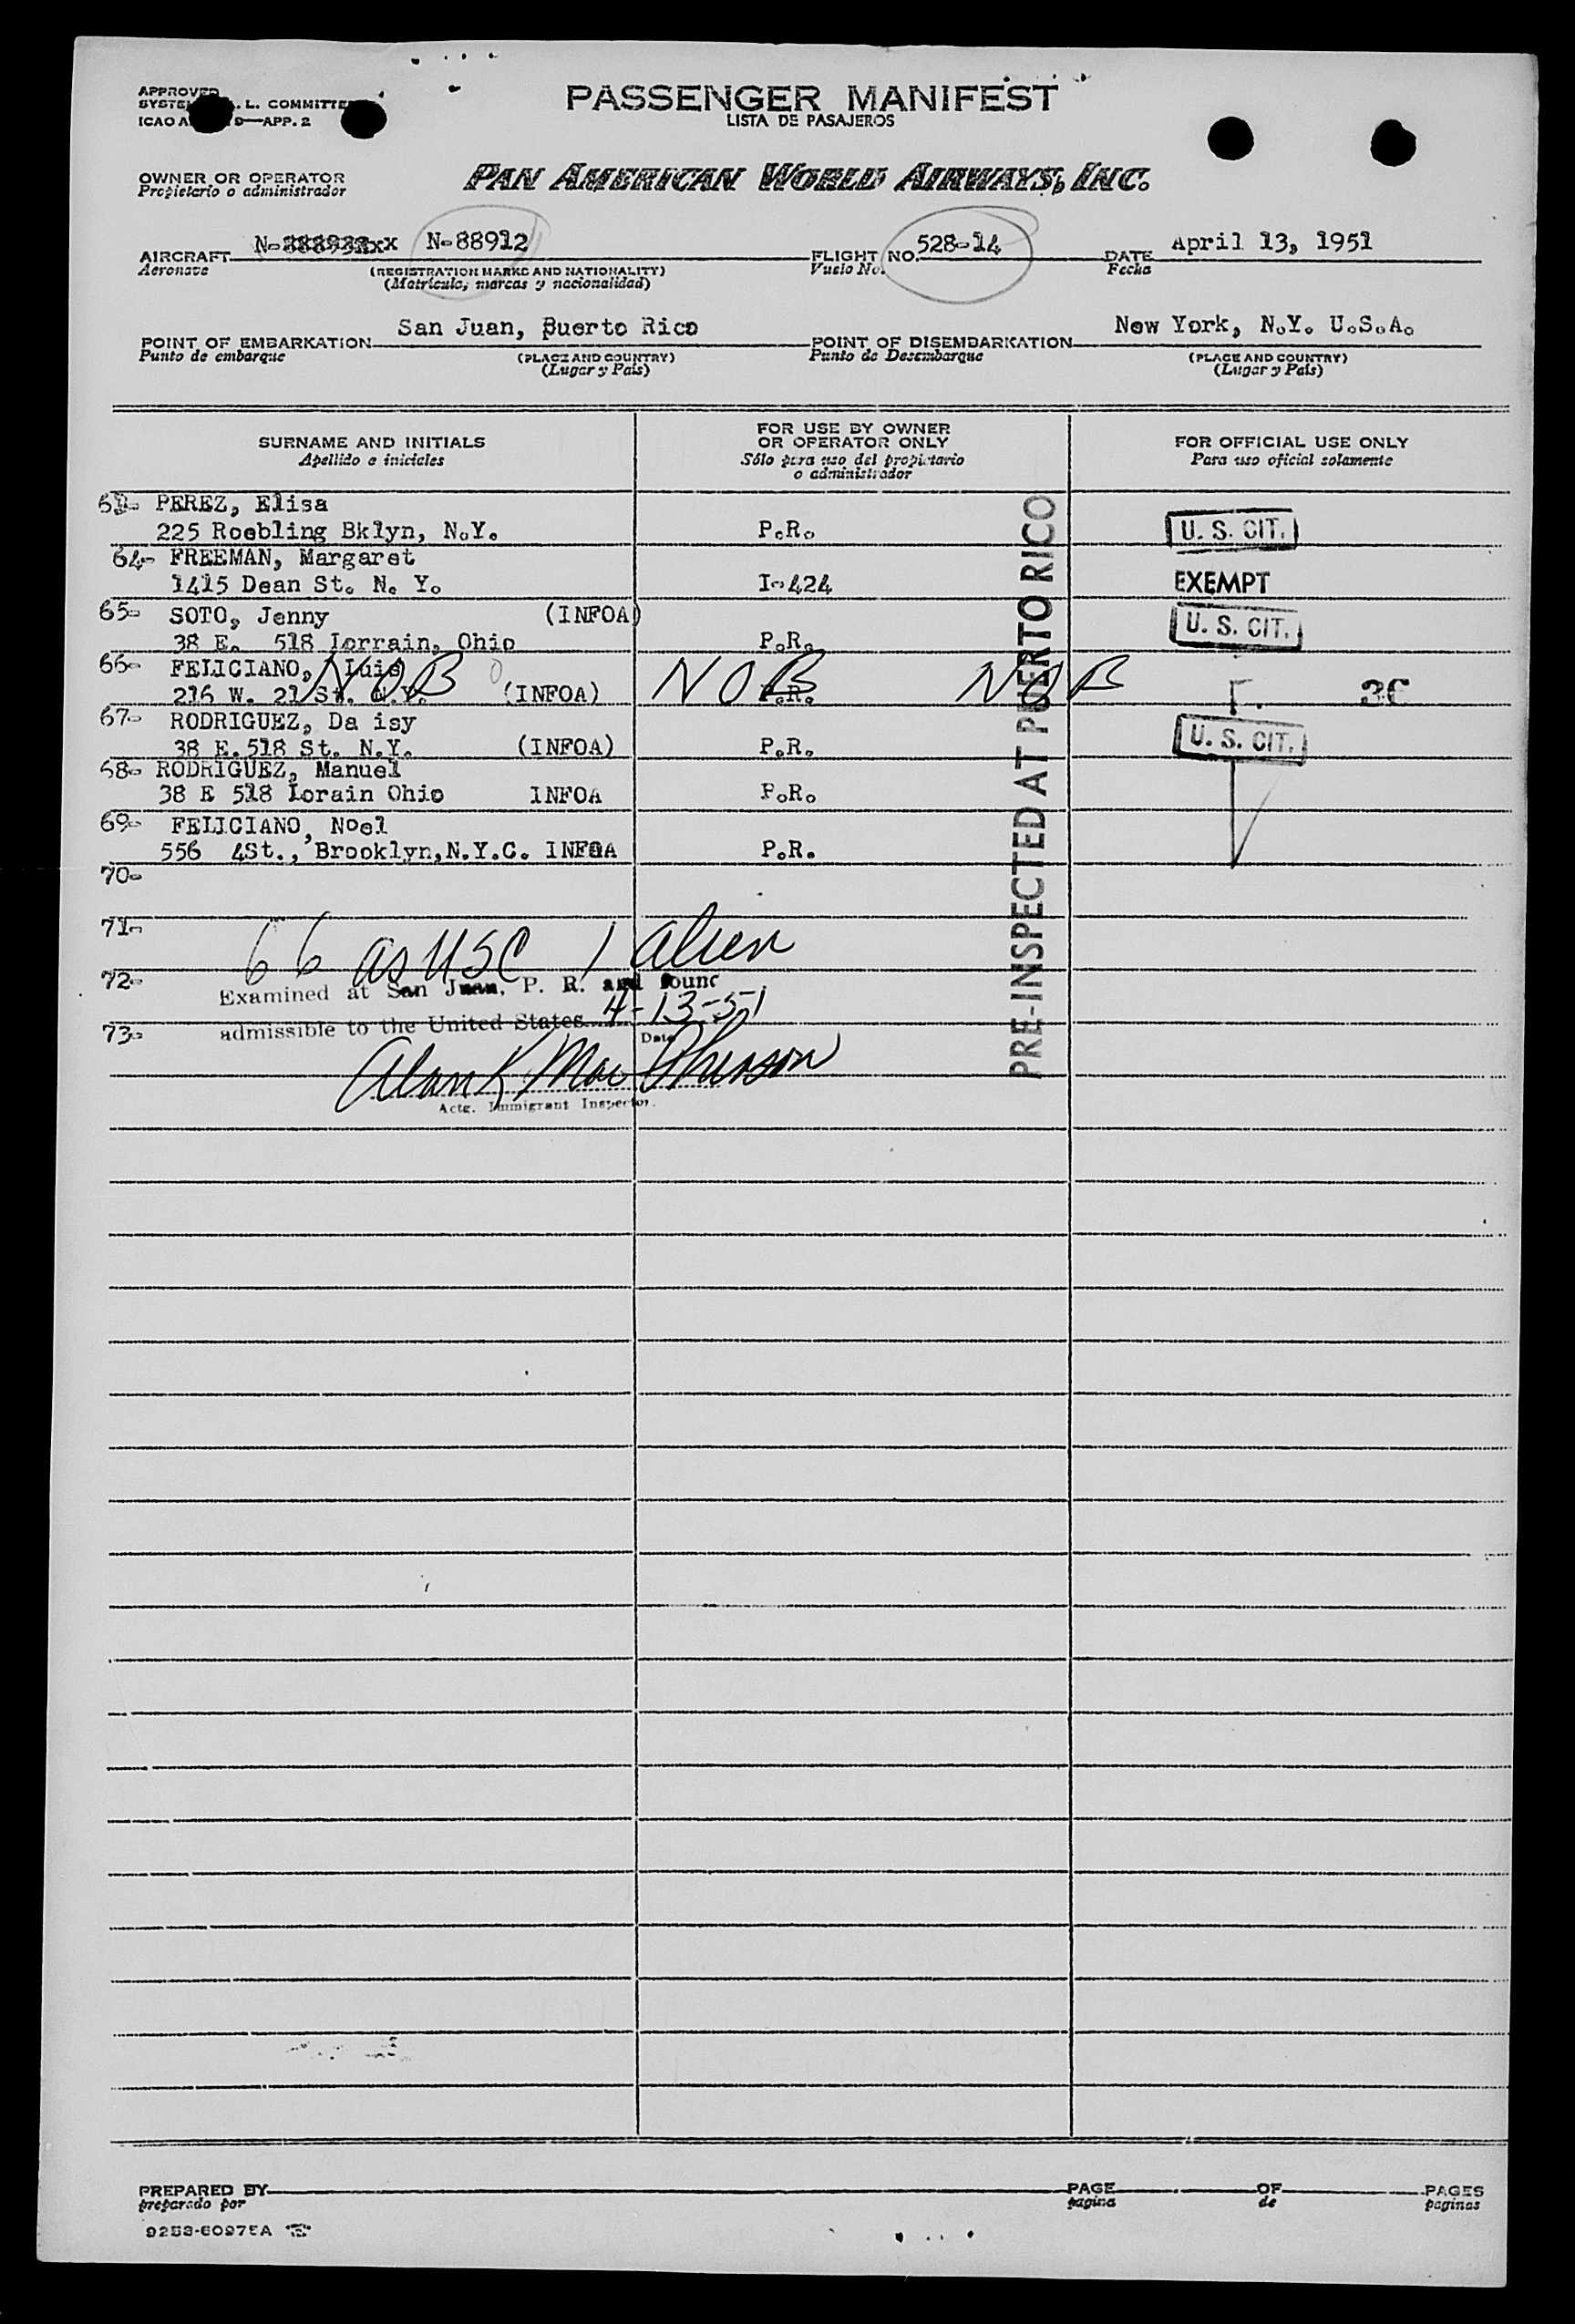 APPROVED
SYSTE . L. COMMITTE
ICAO A 9—APP. 2
PASSENGER MANIFEST
LISTA DE PASAJEROS
OWNER OR OPERATOR
Propietario o administrador
PAN AMERICAN WORLD AIRWAYS, INC.
AIRCRAFT N-888932xx N-88912
Aeronave
(REGISTRATION MARKS AND NATIONALITY)
(Matrícula, marcas y nacionalidad)
FLIGHT NO. 528-14
Vuelo No.
DATE April 13, 1951
Fecha
POINT OF EMBARKATION San Juan, Puerto Rico
Punto de embarque
(PLACE AND COUNTRY)
(Lugar y País)
POINT OF DISEMBARKATION New York, N.Y. U.S.A.
Punto de Desembarque
(PLACE AND COUNTRY)
(Lugar y País)
SURNAME AND INITIALS
Apellido e iniciales
FOR USE BY OWNER
OR OPERATOR ONLY
Sólo para uso del propietario
o administrador
FOR OFFICIAL USE ONLY
Para uso oficial solamente
63- PEREZ, Elisa
225 Roebling Bklyn, N.Y. P.R. U. S. CIT.
64- FREEMAN, Margaret
1415 Dean St. N. Y. I-424 EXEMPT
65- SOTO, Jenny (INFOA)
38 E. 518 Lorrain, Ohio P.R. U. S. CIT.
66- FELICIANO, Luis
216 W. 21 St. N.Y. (INFOA) P.R.
NOB NOB NOB
67- RODRIGUEZ, Da isy
38 E.518 St. N.Y. (INFOA) P.R. U. S. CIT.
68- RODRIGUEZ, Manuel
38 E 518 Lorain Ohio INFOA P.R.
69- FELICIANO, Noel
556 4St., Brooklyn,N.Y.C. INFOA P.R.
70-
71-
72-
73-
PRE-INSPECTED AT PUERTO RICO
66 as USC 1 alien
Examined at San Juan, P. R. and found
admissible to the United States 4-13-51
Date
Alan K MacPherson
Actg. Immigrant Inspector.
PREPARED BY
preparado por
PAGE
pagina
OF
de
PAGES
paginas